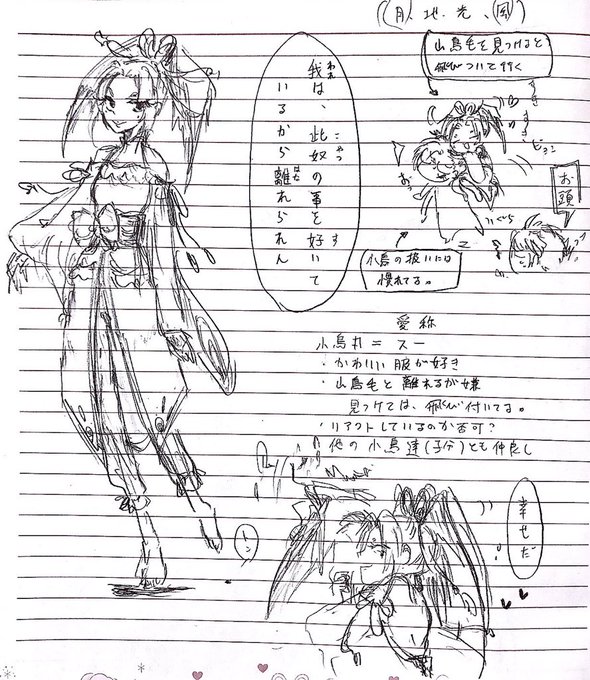 (月、地、光、風)
山鳥毛を見つけると
飛びついて行く
すき
すき
ピョン
お頭
小鳥の扱いには
慣れてる。
我は、此奴の事を好いて
いるから離れられん
愛称
小烏丸＝スー
・かわいい服が好き
・山鳥毛と離れるが嫌
見つけては、飛び付いてる。
・リアクトしているのか否可?
他の小鳥達(子分)とも仲良し
幸せだ
トン